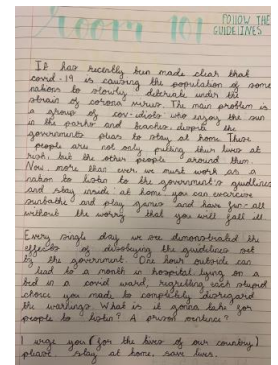 Room 101
FOLLOW THE
GUIDELINES
It has recently been made clear that
covid-19 is causing the population of some
nations to slowly deteriate under the
strain of corona virus. The main problem is
a group of cov-idiots who enjoy the sun
in the parks and beaches, despite the
governments pleas to stay at home. These
people are not only putting their lives at
risk, but the other people around them.
Now, more than ever, we must work as a
nation to listen to the government's guidlines
and stay inside: at home you can exercise
sunbathe and play games and have fun - all
without the worry that you will fall ill.
Every single day we are demonstrated the
effects of disobeying the guidelines set
by the government. One hour outside can
lead to a month in hospital lying on a
bed in a covid ward, regretting each stupid
choice you made to completely disregard
the warnings. What is it gonna take for
people to listen? A prison sentence?
I urge you (for the lives of our country)
please, stay at home, save lives.